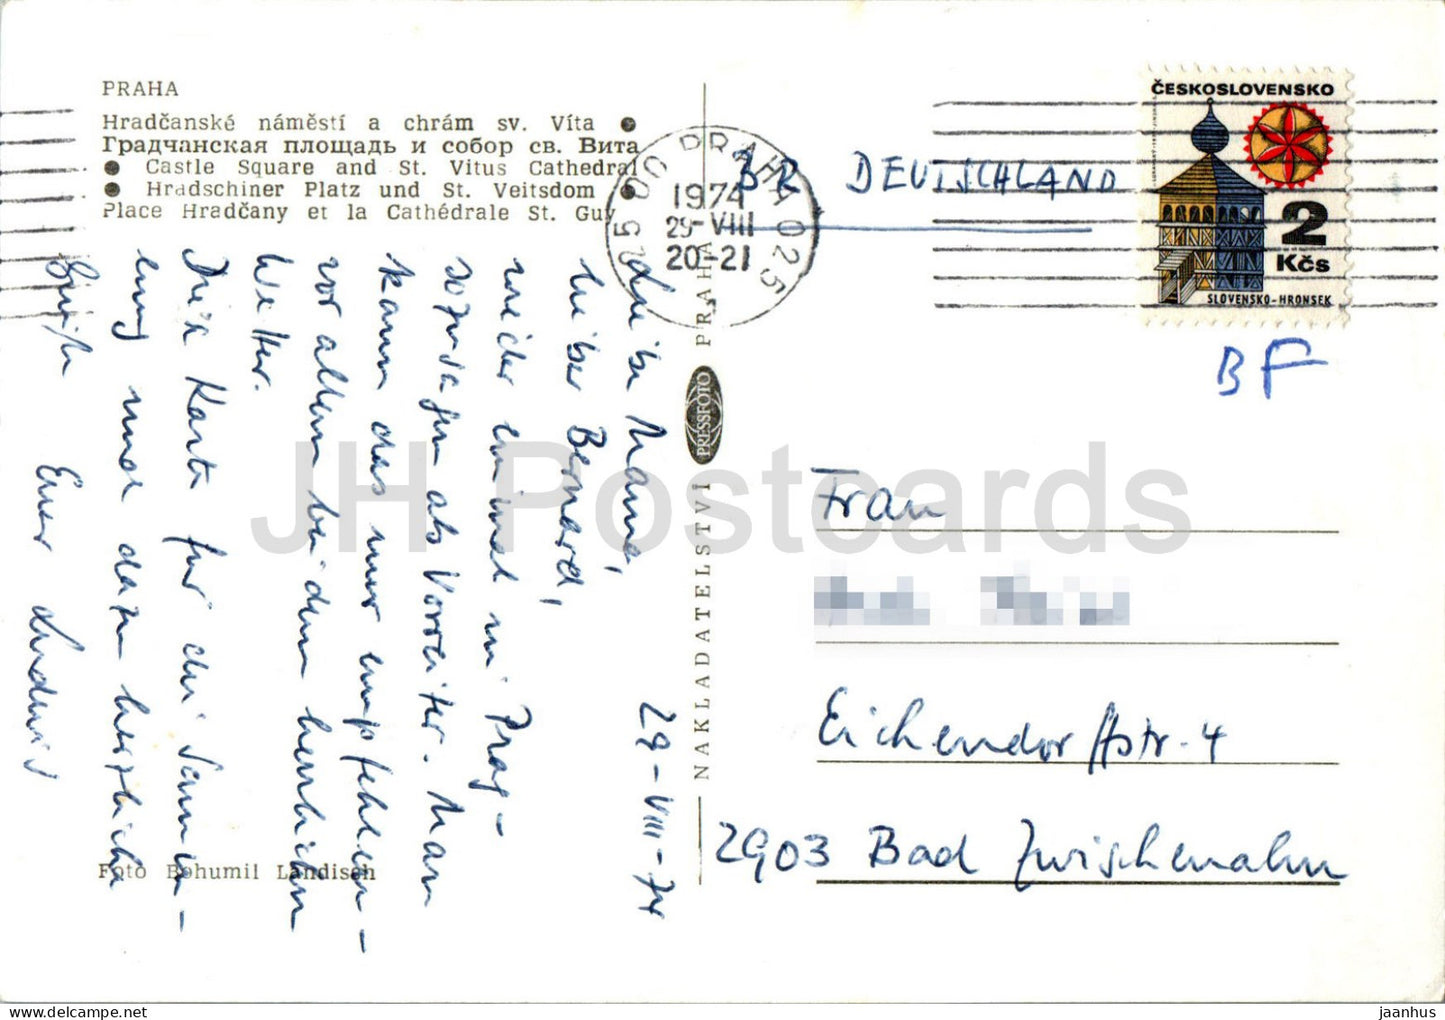 PRAHA
Hradčanské náměstí a chrám sv. Víta ●
Градчанская площадь и собор св. Вита
● Castle Square and St. Vitus Cathedral
● Hradschiner Platz und St. Veitsdom ●
Place Hradčany et la Cathédrale St. Guy
29-VIII-74
Liebe Mama,
lieber Bernard,
wieder einmal in Prag –
sozusagen als Vorreiter. Man
kann das nur empfehlen –
vor allem bei dem herrlichen
Wetter.
Die Karte für die Samm-
lung und dazu herzliche
Grüße Euer Ludwig
Foto Bohumil Landisch
NAKLADATELSTVÍ PRESSFOTO PRAHA
PRAHA 025
1974
29-VIII
20-21
BR DEUTSCHLAND
ČESKOSLOVENSKO
2
Kčs
SLOVENSKO-HRONSEK
BF
Frau
Eichendorffstr. 4
2903 Bad Zwischenahn
JH Postcards
delcampe.net
jaanhus